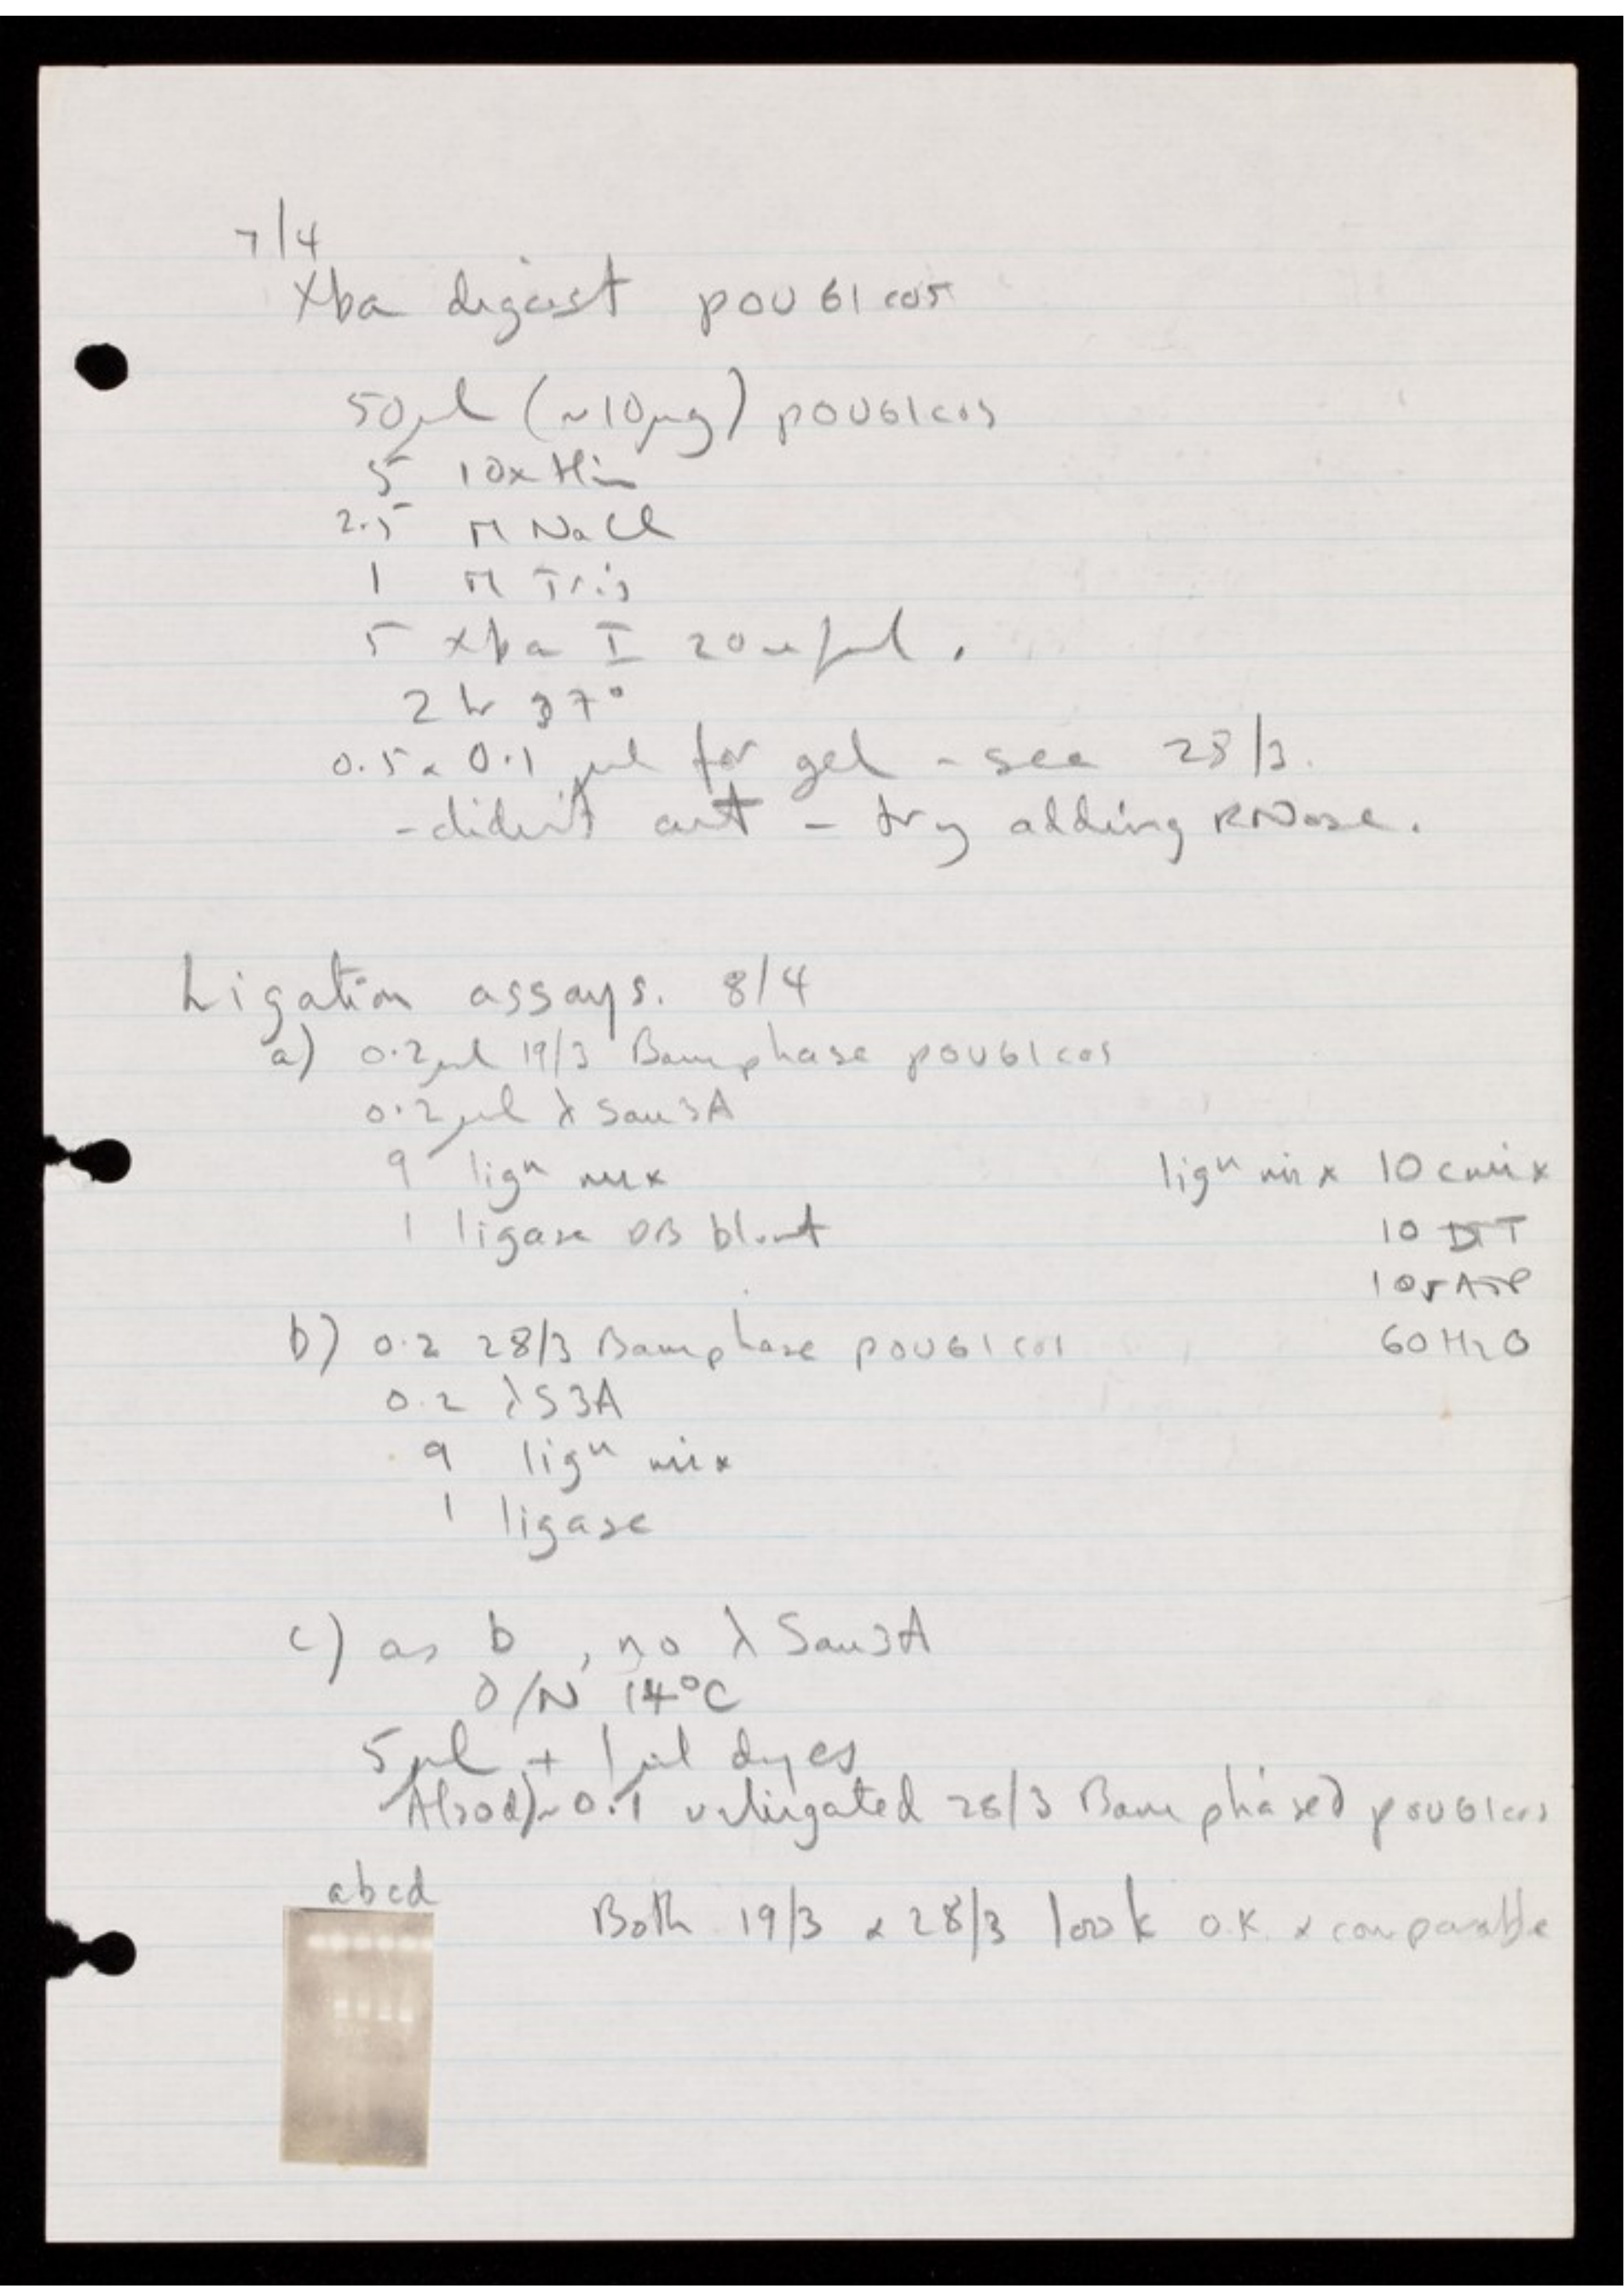 7/4
Xba digest pOU61cos
50µl (~10µg) pOU61cos
5 10x Hin
2.5 M NaCl
1 M Tris
5 Xba I 20u/µl.
2 hr 37°
0.5 & 0.1 µl for gel - see 28/3.
- didn't cut - try adding RNase.
Ligation assays. 8/4
a) 0.2µl 19/3 Bam phase pOU61cos
0.2µl λ Sau3A
9 ligⁿ mix
1 ligase DB blunt
ligⁿ mix 10 cmix
10 DTT
10 ATP
60 H2O
b) 0.2 28/3 Bam phase pOU61cos
0.2 λS3A
9 ligⁿ mix
1 ligase
c) as b, no λ Sau3A
O/N 14°C
5µl + 1µl dyes
Also d) ~0.1 unligated 28/3 Bam phased pOU61cos
a b c d
Both 19/3 & 28/3 look O.K. & comparable